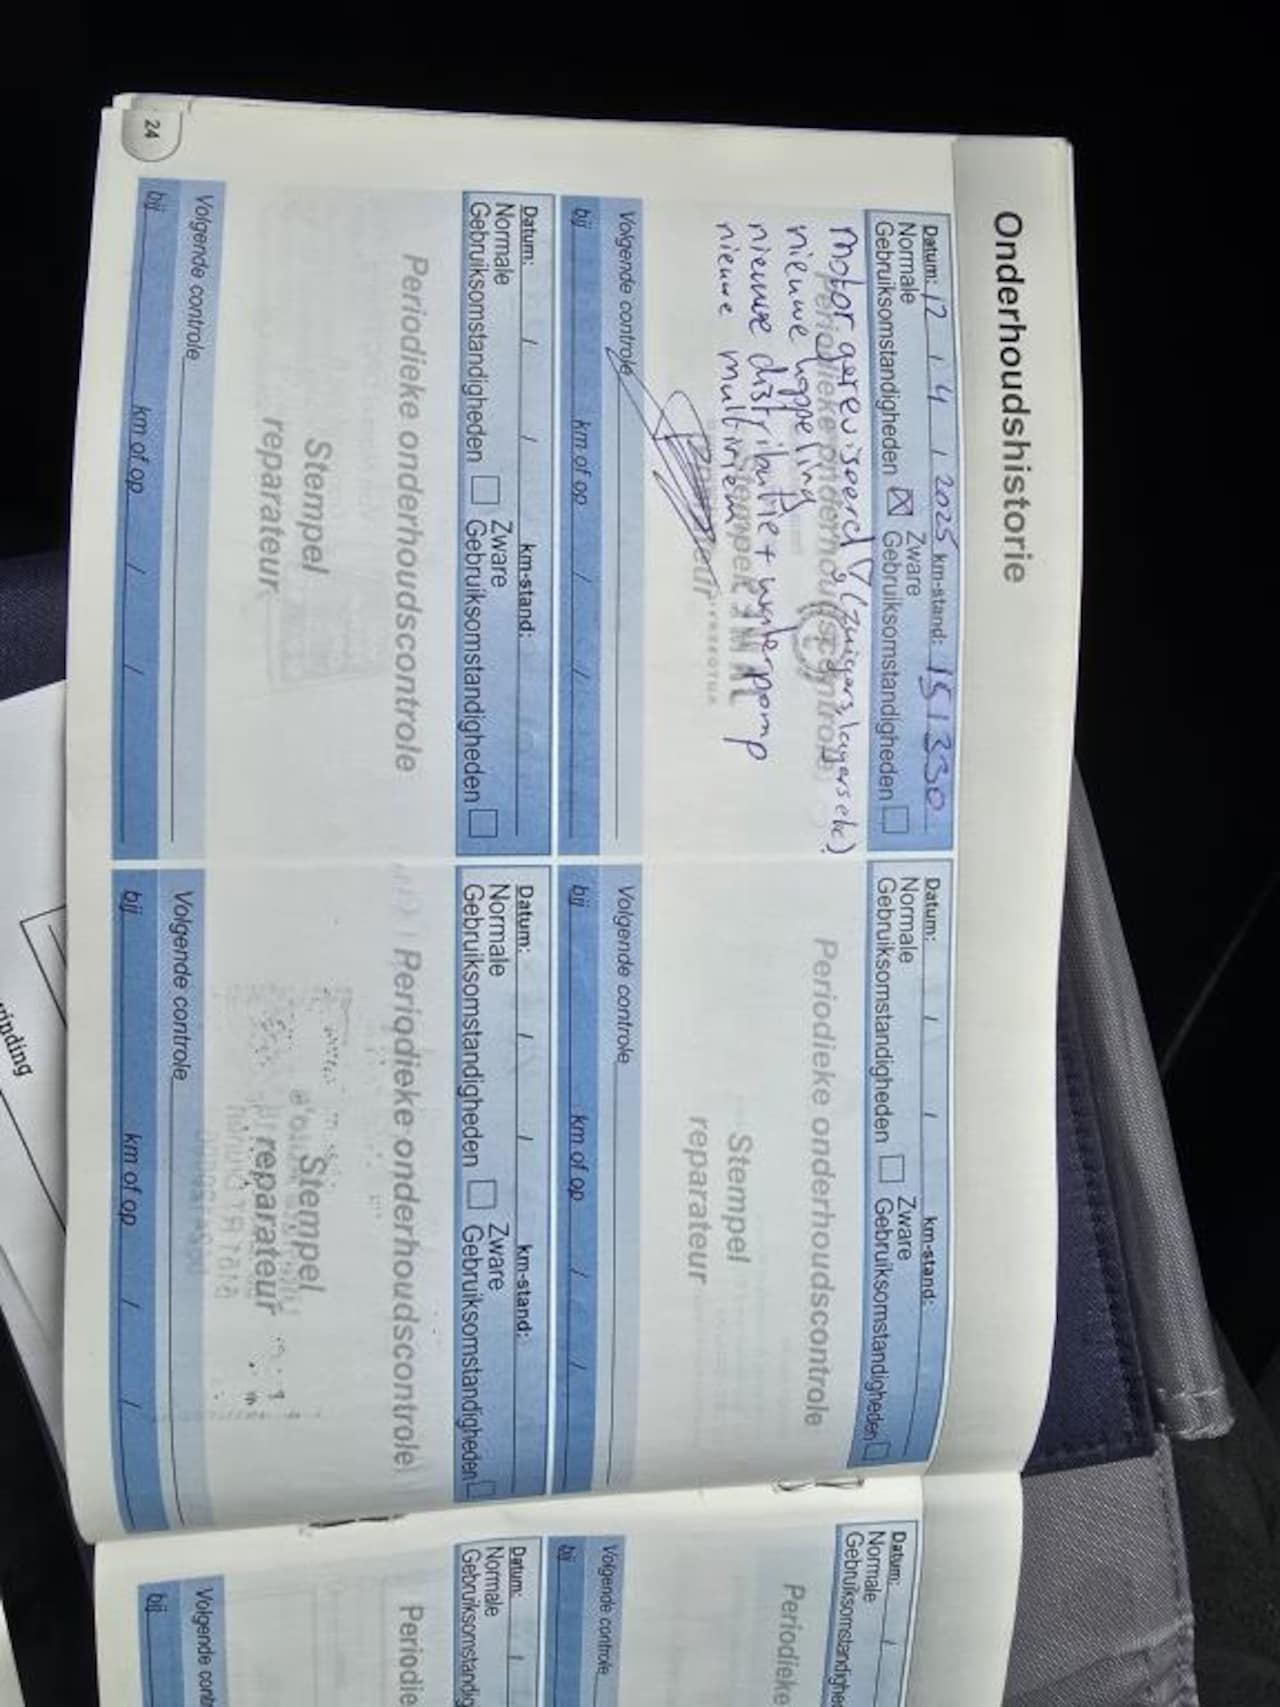 Onderhoudshistorie
Datum: 12 / 4 / 2025 km-stand: 151330
Normale Zware
Gebruiksomstandigheden Gebruiksomstandigheden
Periodieke onderhoudscontrole
motor gereviseerd (zuigers, lagers etc)
nieuwe koppeling
nieuwe distributie + waterpomp
nieuwe multiriem
Stempel
Volgende controle
bij km of op / /
Datum: / / km-stand:
Normale Zware
Gebruiksomstandigheden Gebruiksomstandigheden
Periodieke onderhoudscontrole
Stempel
reparateur
Volgende controle
bij km of op / /
Datum: / / km-stand:
Normale Zware
Gebruiksomstandigheden Gebruiksomstandigheden
Periodieke onderhoudscontrole
Stempel
reparateur
Volgende controle
bij km of op / /
Datum: / / km-stand:
Normale Zware
Gebruiksomstandigheden Gebruiksomstandigheden
Periodieke onderhoudscontrole
Stempel
reparateur
Volgende controle
bij km of op / /
24
Datum: /
Normale
Periodieke
Volgende controle
bij
Datum: /
Normale
Volgende
bij